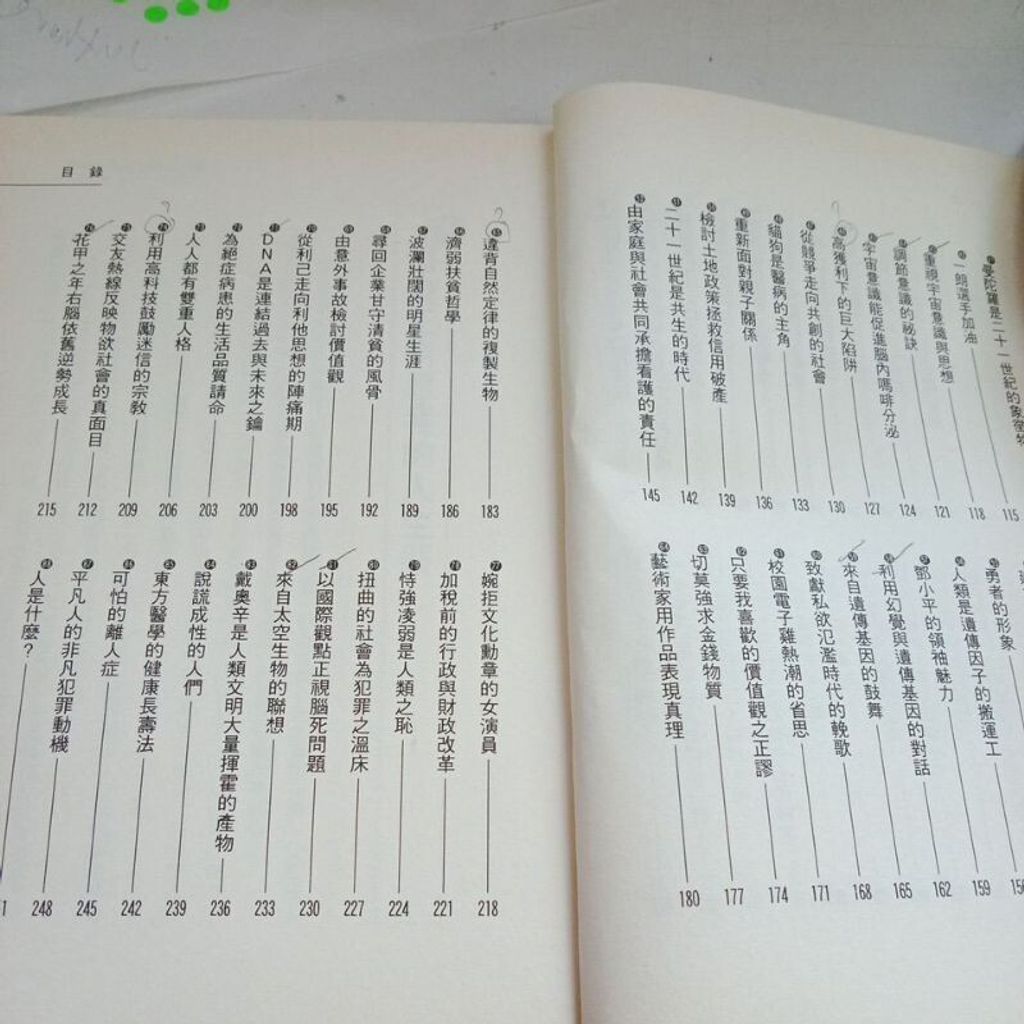 曼陀羅是二十一世紀的象徵物 115
一朗選手加油 118
重視宇宙意識與思想 121
調節意識的祕訣 124
宇宙意識能促進腦內嗎啡分泌 127
高獲利下的巨大陷阱 130
從競爭走向共創的社會 133
貓狗是醫病的主角 136
重新面對親子關係 139
檢討土地政策拯救信用破產 142
二十一世紀是共生的時代 145
由家庭與社會共同承擔看護的責任
勇者的形象 156
人類是遺傳因子的搬運工 159
鄧小平的領袖魅力 162
利用幻覺與遺傳基因的對話 165
來自遺傳基因的鼓舞 168
致獻私欲氾濫時代的輓歌 171
校園電子雞熱潮的省思 174
只要我喜歡的價值觀之正謬 177
切莫強求金錢物質 180
藝術家用作品表現真理
目錄
65 違背自然定律的複製生物 183
66 濟弱扶貧哲學 186
67 波瀾壯闊的明星生涯 189
68 尋回企業甘守清貧的風骨 192
69 由意外事故檢討價值觀 195
70 從利己走向利他思想的陣痛期 198
71 DNA是連結過去與未來之鑰 200
72 為絕症病患的生活品質請命 203
73 人人都有雙重人格 206
74 利用高科技鼓勵迷信的宗教 209
75 交友熱線反映物欲社會的真面目 212
76 花甲之年右腦依舊逆勢成長 215
77 婉拒文化勳章的女演員 218
78 加稅前的行政與財政改革 221
79 恃強凌弱是人類之恥 224
80 扭曲的社會為犯罪之溫床 227
81 以國際觀點正視腦死問題 230
82 來自太空生物的聯想 233
83 戴奧辛是人類文明大量揮霍的產物 236
84 說謊成性的人們 239
85 東方醫學的健康長壽法 242
86 可怕的離人症 245
87 平凡人的非凡犯罪動機 248
88 人是什麼？